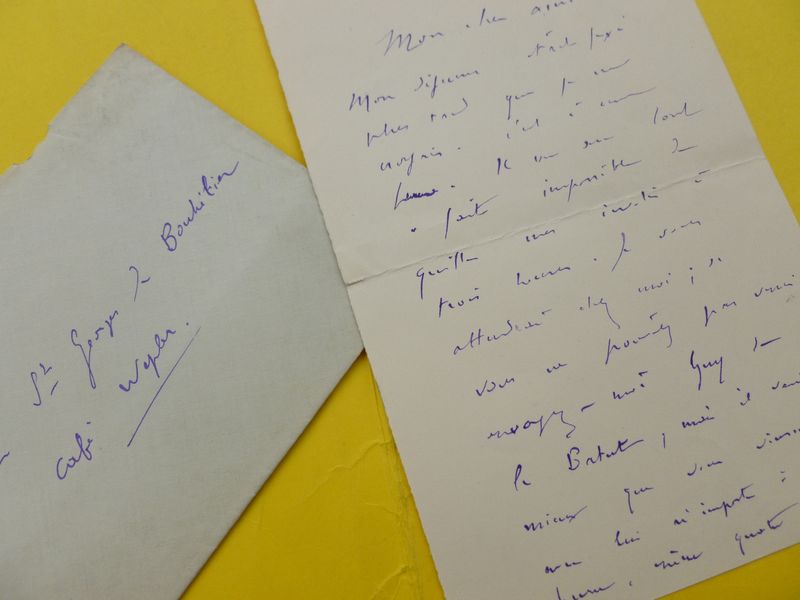 St Georges de Bouhélier
café Wepler.
Mon cher ami
Mon déjeuner était fixé
plus tard que je ne
croyais. c'est à une
heure. Il me sera tout
à fait impossible de
quitter mes invités à
trois heures. Je vous
attendrai chez moi ; si
vous ne pouvez pas venir
envoyez-moi Guy de
la Batut, mais il
mieux que vous
ou lui n'importe à
heure, même quatre